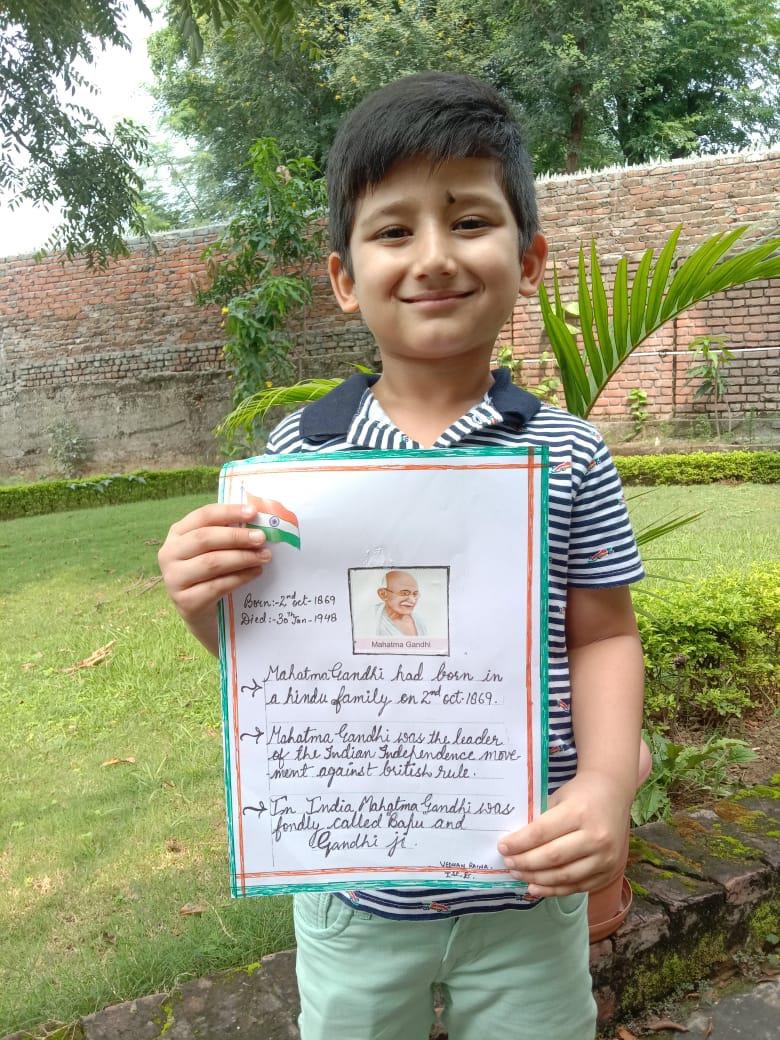 Born:-2nd oct-1869
Died:-30th Jan-1948
Mahatma Gandhi
Mahatma Gandhi had born in
a hindu family on 2nd oct.1869.
Mahatma Gandhi was the leader
of the Indian Independence move
-ment against british rule.
In India, Mahatma Gandhi was
fondly called "Bapu" and
Gandhi ji.
VEDHAN RAINA.